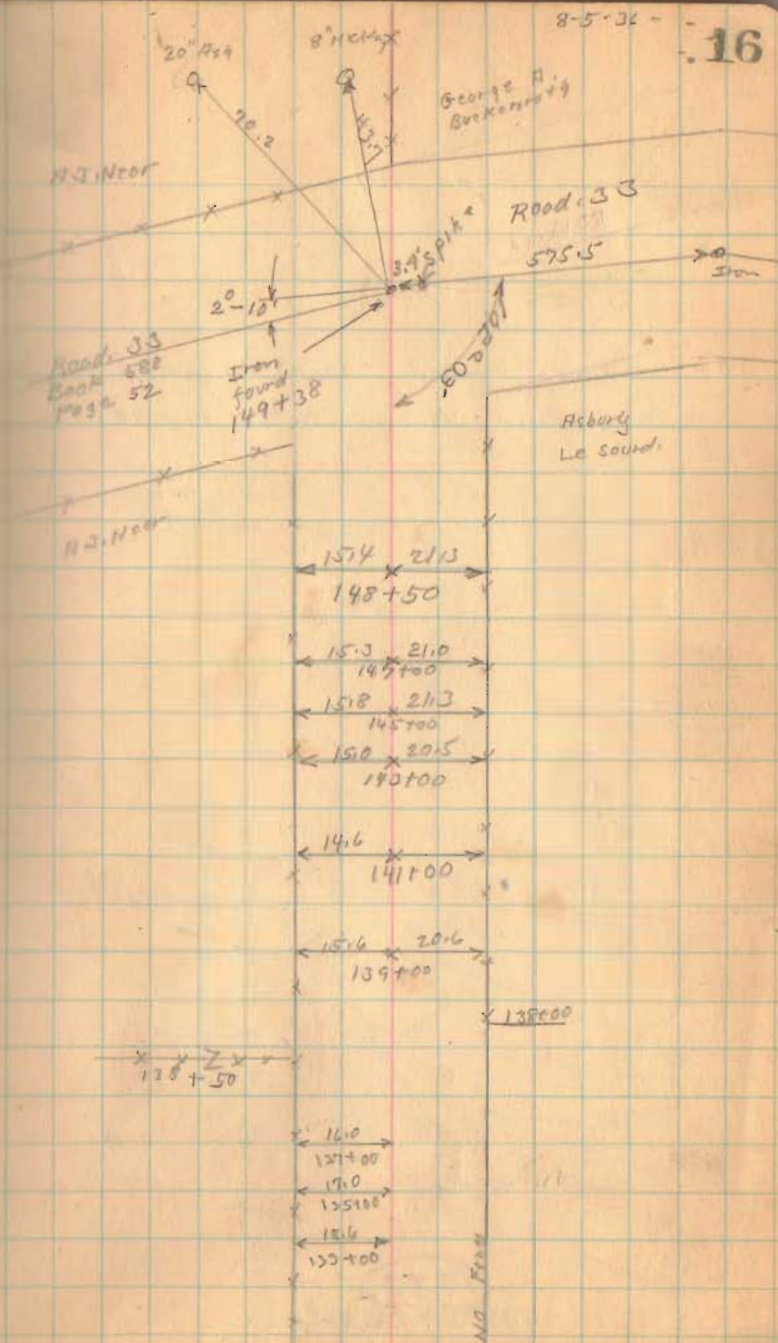 8-5-36
16
20" Ash
8"
George A.
70.2
43.7
N.J.
Road. 33
3.9'
Spike
575.5
Iron
2°-10'
Road. 33
Book 588
Page 52
Iron
found
149+38
Asbury
Le Sourd.
N.J.
15.4 21.3
148+50
15.3 21.0
147+00
15.8 21.3
145+00
15.0 20.5
143+00
14.6
141+00
15.6 20.6
139+00
138+00
138+50
16.0
137+00
17.0
135+00
18.6
133+00
No Fence